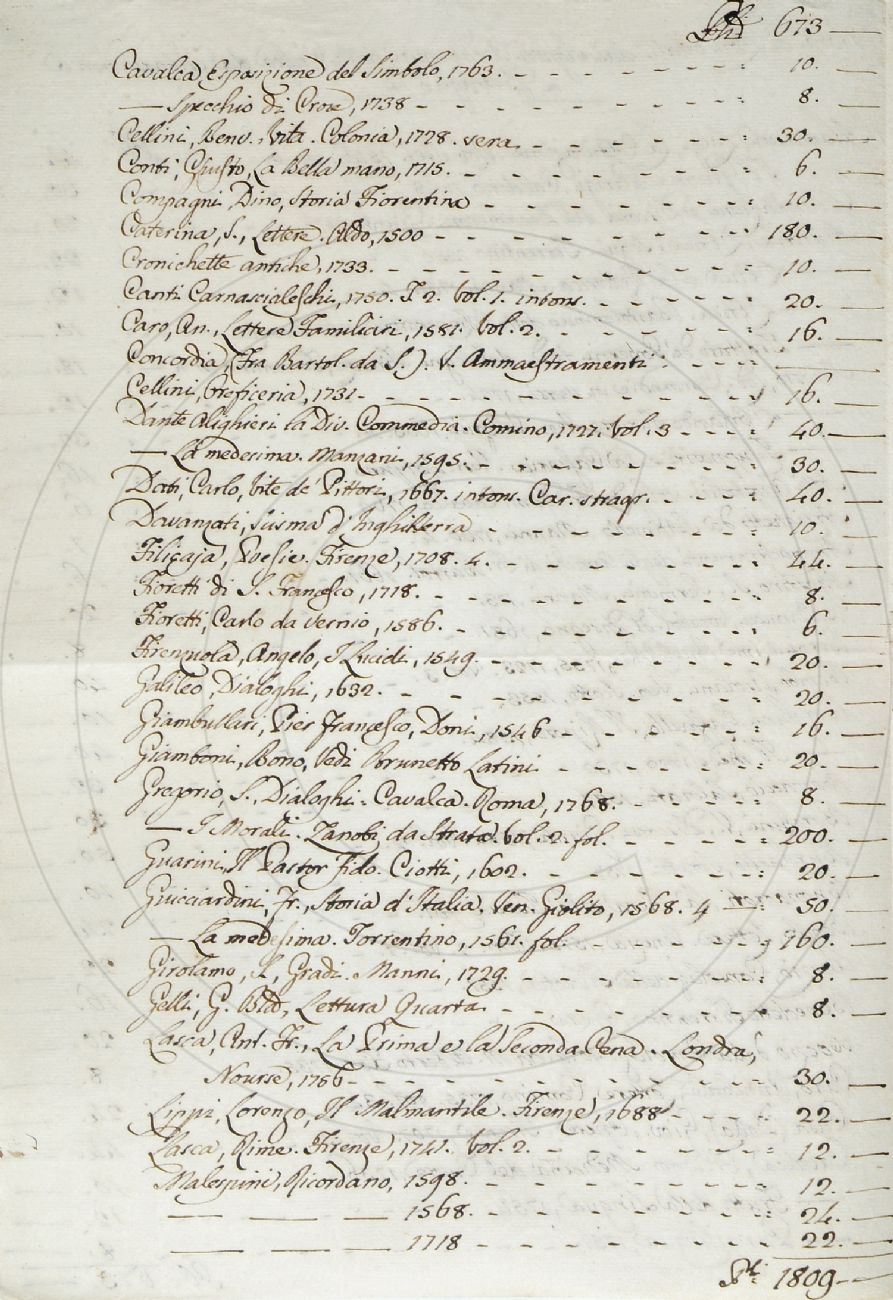 673
Cavalca, Esposizione del Simbolo, 1763. 10.
— Specchio di Croce, 1738 8.
Cellini, Benv. Vita. Colonia, 1728. vera 30.
Conti, Giusto, La Bella mano, 1715. 6.
Compagni, Dino, Storia Fiorentina 10.
Caterina, S., Lettere. Aldo, 1500 180.
Cronichette antiche, 1733. 10.
Canti Carnascialeschi, 1750. T 2. Vol. 1. intons. 20.
Caro, An., Lettere Familiari, 1581. Vol. 2. 16.
Concordia, (Fra Bartol. da S.). V. Ammaestramenti
Cellini, Oreficeria, 1731. 16.
Dante Alighieri la Div. Commedia. Comino, 1727. Vol. 3 40.
— La medesima. Manzani, 1595. 30.
Dati, Carlo, Vite de' Pittori, 1667. intons. Car. stragr. 40.
Davanzati, Scisma d'Inghilterra 10.
Filicaja, Poesie. Firenze, 1708. 4. 44.
Fioretti di S. Francesco, 1718. 8.
Fioretti, Carlo da Vernio, 1586. 6.
Firenzuola, Angelo, I Lucidi, 1549. 20.
Galileo, Dialoghi, 1632. 20.
Giambullari, Pier Francesco, Doni, 1546 16.
Giamboni, Bono, Vedi Brunetto Latini 20.
Gregorio, S., Dialoghi. Cavalca. Roma, 1768. 8.
— I Morali. Zanobi da Strata. Vol. 2. fol. 200.
Guarini, Il Pastor fido. Ciotti, 1602. 20.
Guicciardini, Fr., Storia d'Italia. Ven. Giolito, 1568. 4 50.
— La medesima. Torrentino, 1561. fol. 160.
Girolamo, S., Gradi. Manni, 1729. 8.
Gelli, G. Btā, Lettura Quarta 8.
Lasca, Ant. Fr., La Prima e la Seconda Cena. Londra,
Nourse, 1756 30.
Lippi, Lorenzo, Il Malmantile. Firenze, 1688 22.
Lasca, Rime. Firenze, 1741. Vol. 2. 12.
Malespini, Ricordano, 1598. 12.
— — — 1568. 24.
— — — 1718 22.
1809